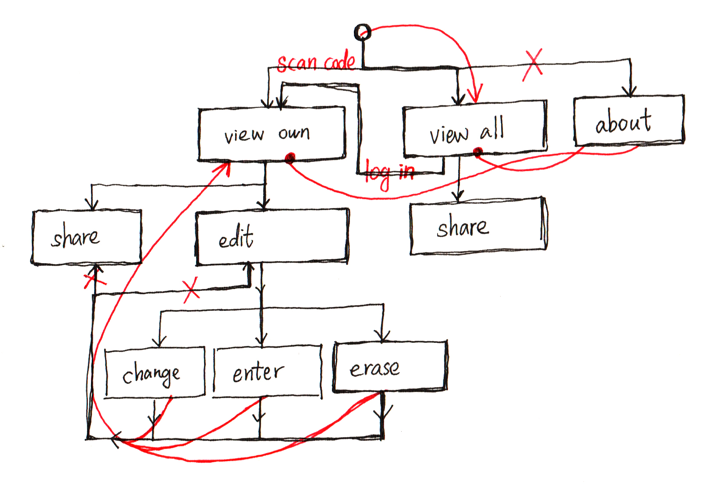 scan code
view own
view all
about
log in
share
edit
share
change
enter
erase